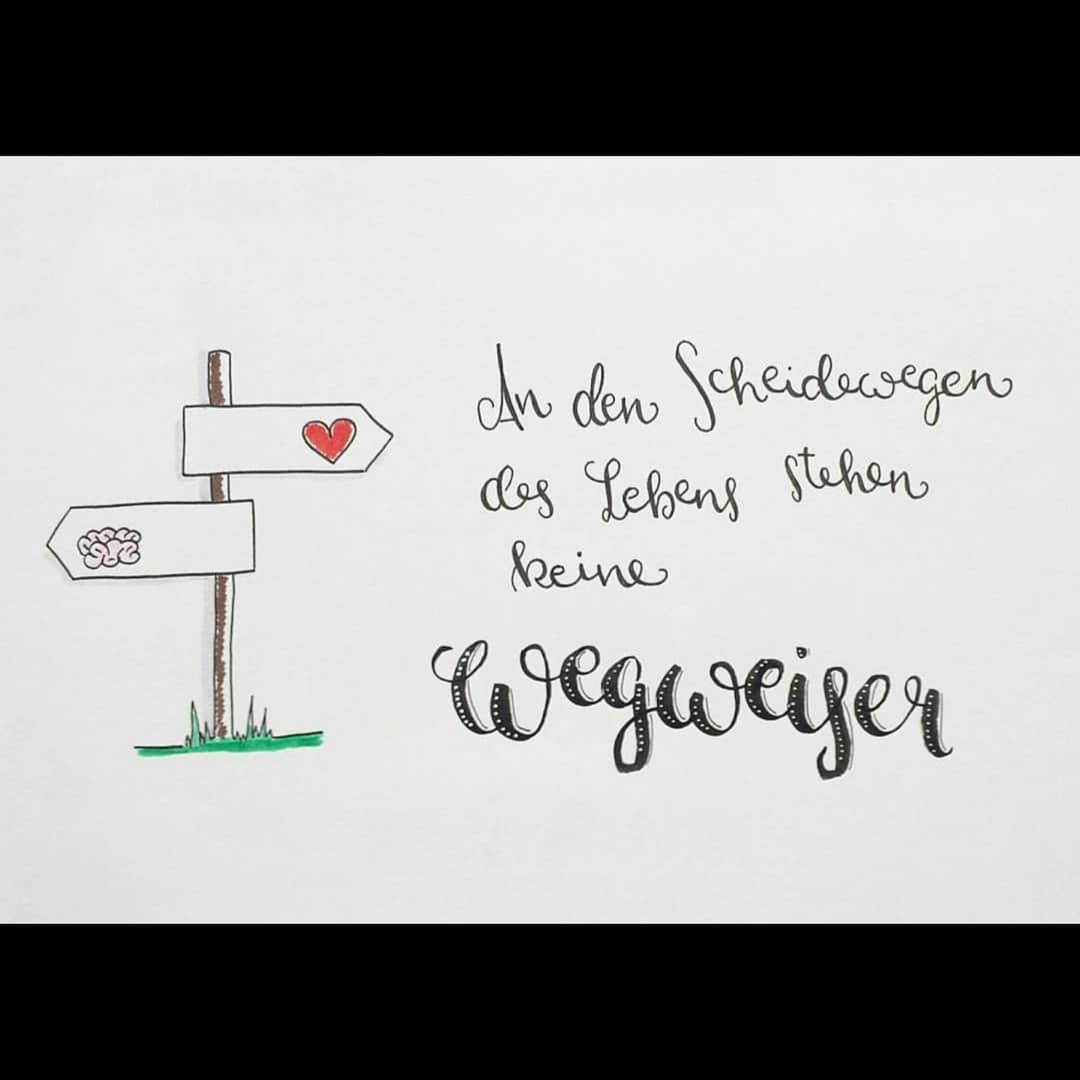 An den Scheidewegen
des Lebens stehen
keine
Wegweiser